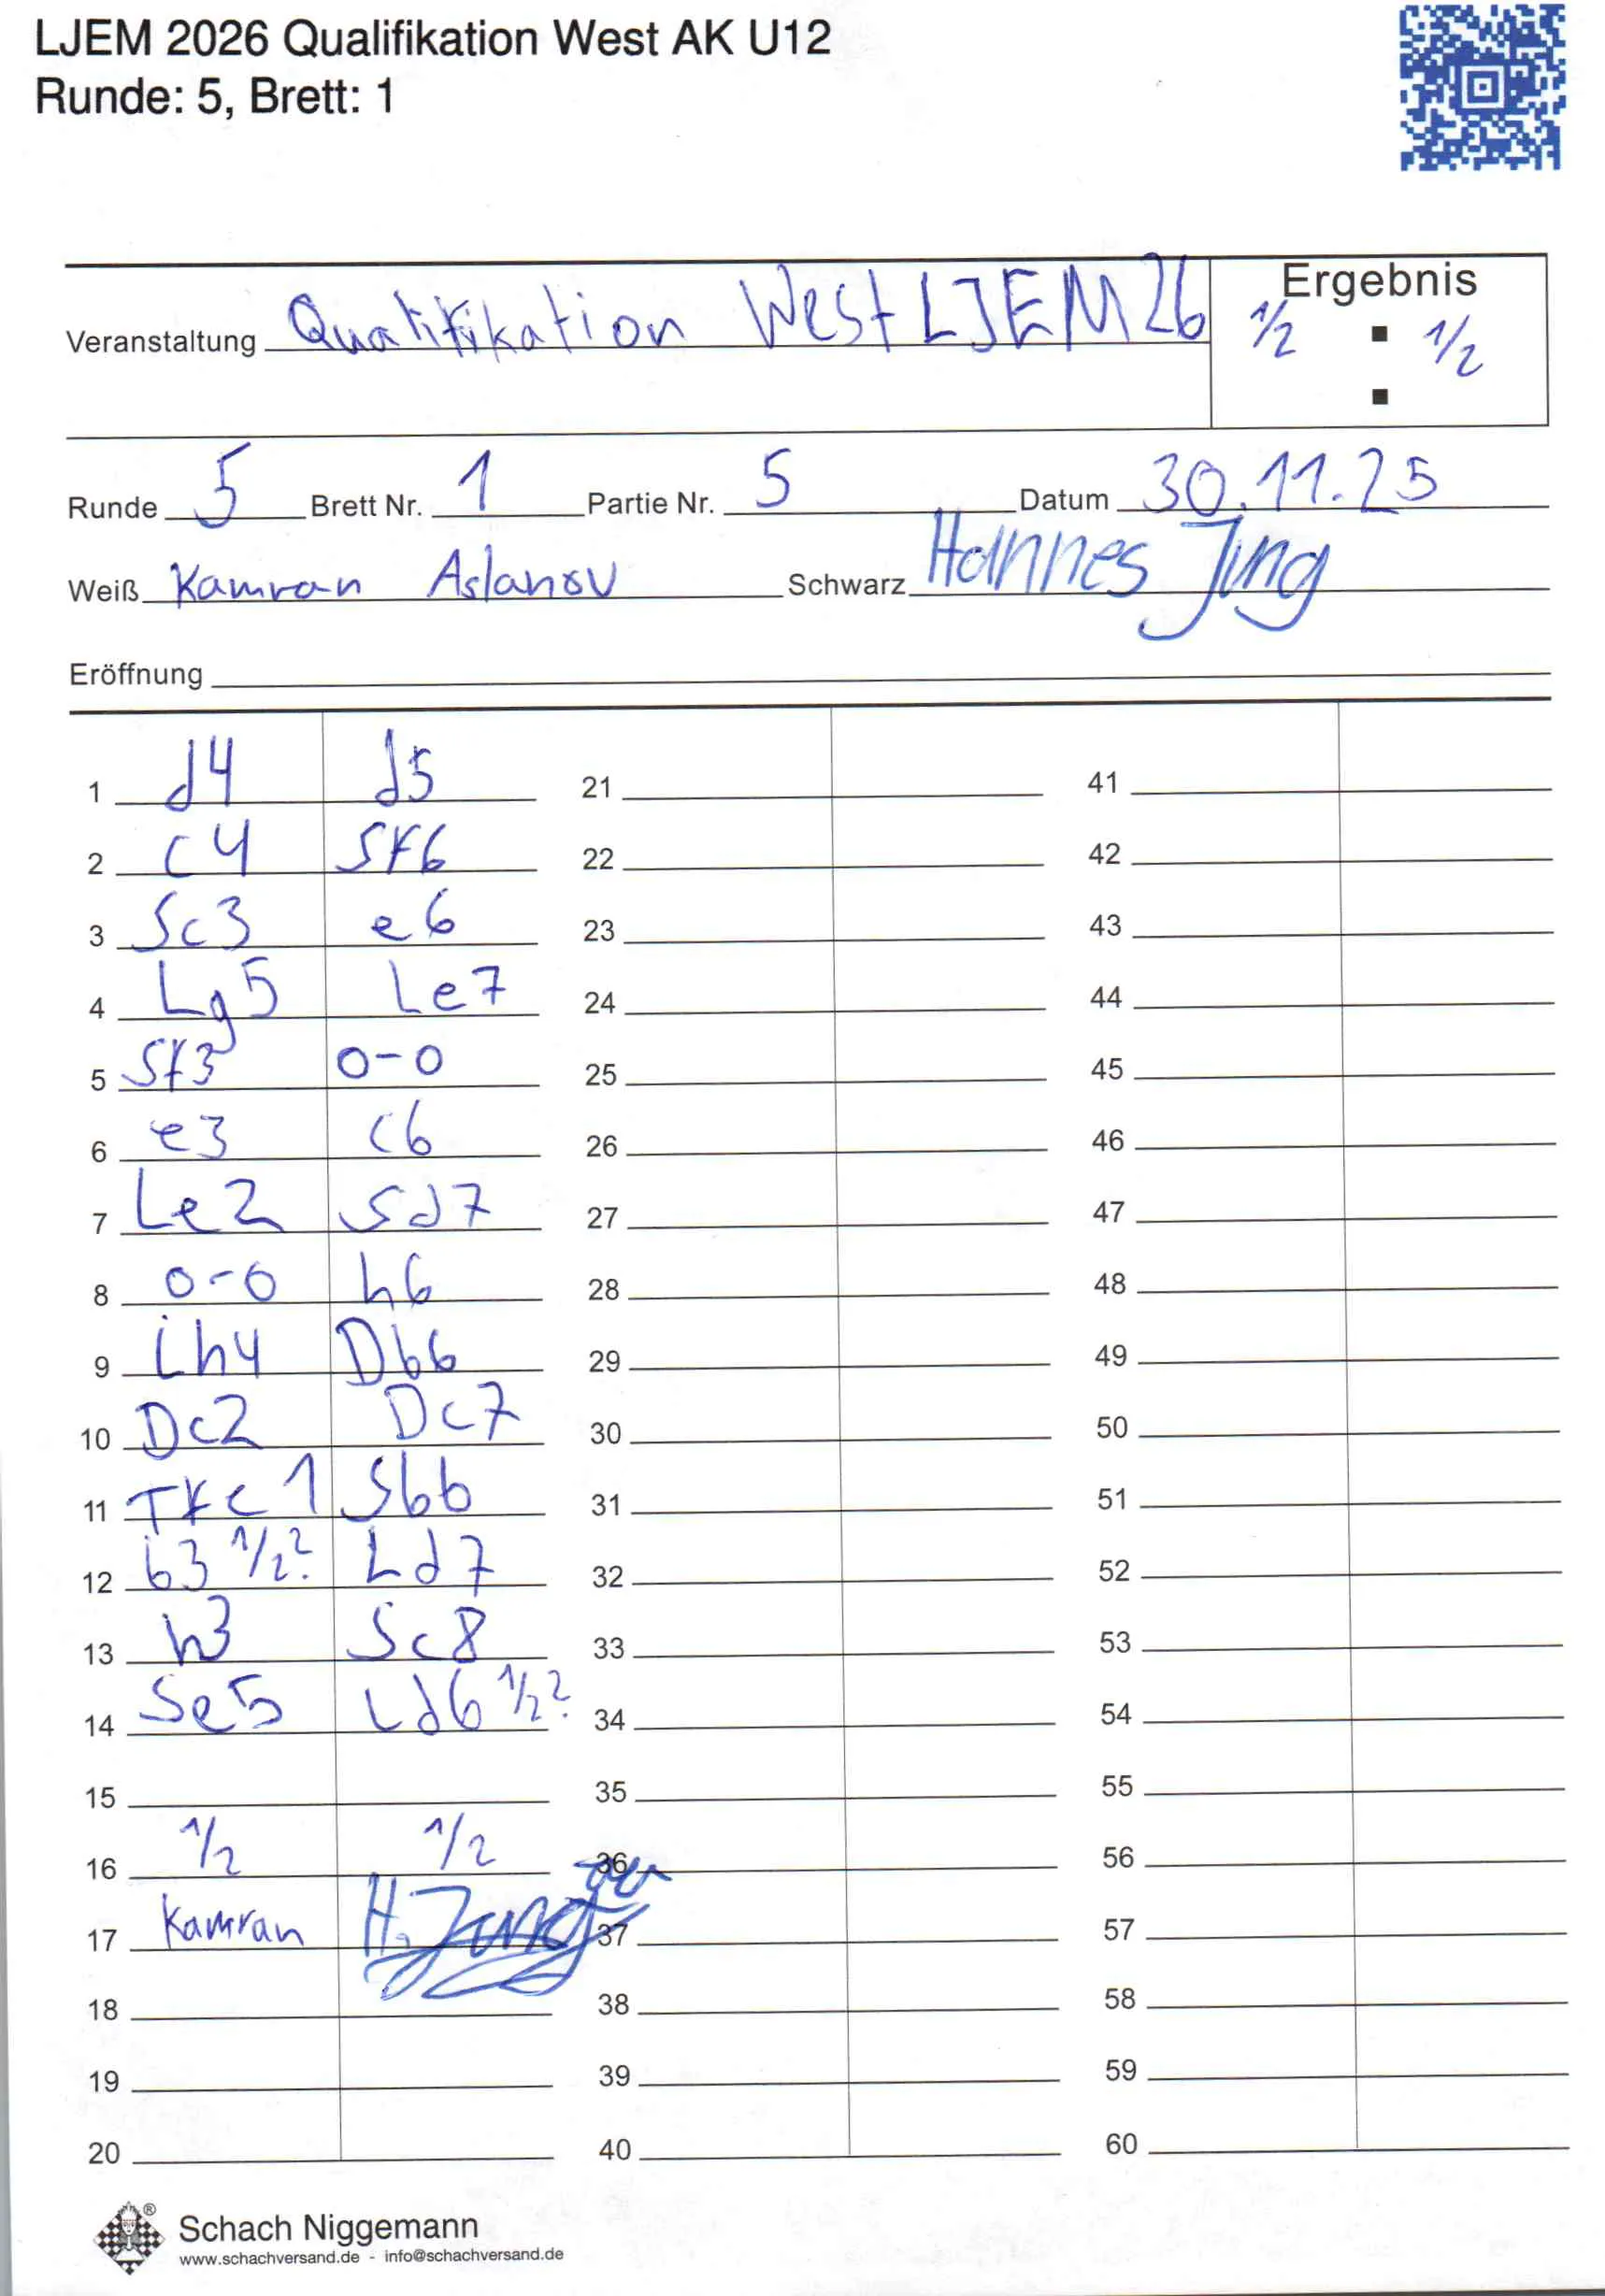 LJEM 2026 Qualifikation West AK U12
Runde: 5, Brett: 1
Ergebnis
Veranstaltung Qualifikation West LJEM 26 1/2 : 1/2
Runde 5 Brett Nr. 1 Partie Nr. 5 Datum 30.11.25
Weiß Kamran Aslanov Schwarz Hannes Jung
Eröffnung
1 d4 d5 21 41
2 c4 Sf6 22 42
3 Sc3 e6 23 43
4 Lg5 Le7 24 44
5 Sf3 0-0 25 45
6 e3 c6 26 46
7 Le2 Sd7 27 47
8 0-0 h6 28 48
9 Lh4 Db6 29 49
10 Dc2 Dc7 30 50
11 Tfc1 Sb6 31 51
12 b3 1/2? Ld7 32 52
13 h3 Sc8 33 53
14 Se5 Ld6 1/2? 34 54
15 35 55
16 1/2 1/2 36 56
17 Kamran H. Jung 37 57
18 38 58
19 39 59
20 40 60
Schach Niggemann ®
www.schachversand.de - info@schachversand.de